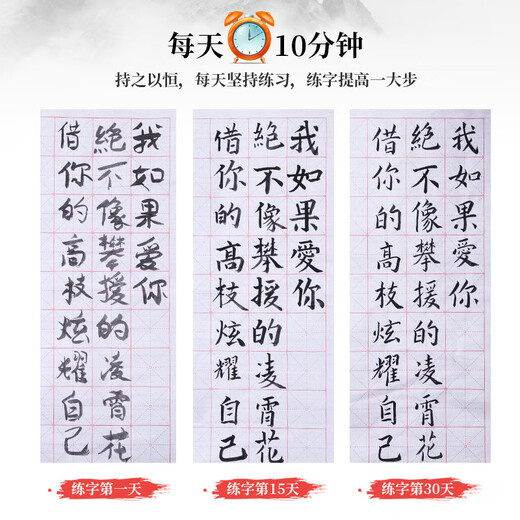 每天10分钟
持之以恒，每天坚持练习，练字提高一大步
我如果愛你
絕不像攀援的凌霄花
借你的高枝炫耀自己
我如果愛你
絕不像攀援的凌霄花
借你的高枝炫耀自己
我如果愛你
絕不像攀援的凌霄花
借你的高枝炫耀自己
练字第一天
练字第15天
练字第30天